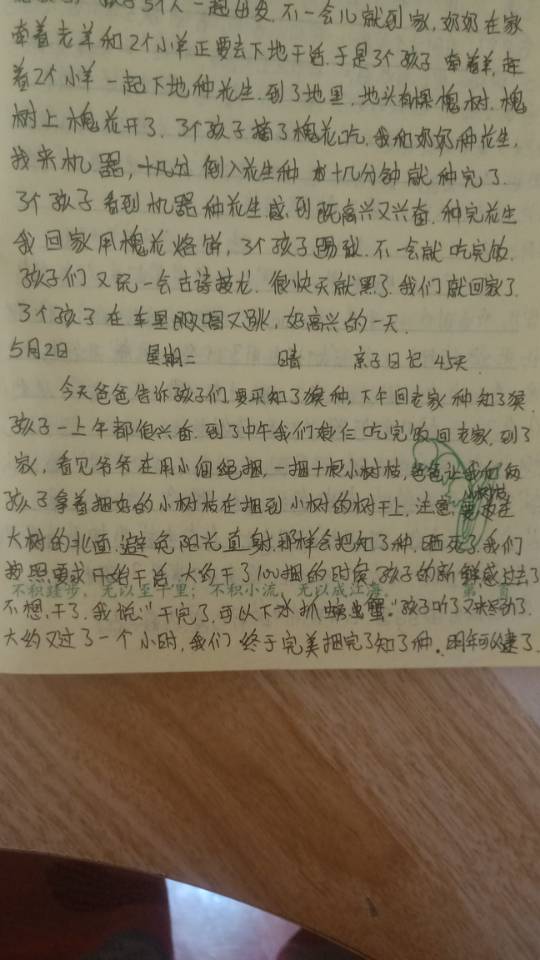 3个人一起出发.不一会儿就到家,奶奶在家
牵着老羊和2个小羊正要去下地干活.于是3个孩子牵着羊,赶
着2个小羊一起下地种花生.到了地里.地头有棵槐树.槐
树上槐花开了.3个孩子摘了槐花吃.我和奶奶种花生.
我来机器,十几分倒入花生种 才十几分钟就种完了.
3个孩子看到机器种花生感到既高兴又兴奋.种完花生
我回家用槐花烙饼,3个孩子踢球.不一会就吃完饭.
孩子们又玩一会古诗接龙.很快天就黑了.我们就回家了.
3个孩子在车里又唱又跳,好高兴的一天.
5月2日 星期二 晴 亲子日记45天
今天爸爸告诉孩子们要买知了猴种,下午回老家种知了猴.
孩子一上午都很兴奋.到了中午我们娘仨吃完饭回老家.到了
家,看见爷爷在用小细绳捆,一捆十根小树枝,爸爸让我和两
孩子拿着捆好的小树枝在捆到小树的树干上.注意:小树枝要放在
大树的北面.避免阳光直射.那样会把知了种.晒死了.我们
按照要求开始干活.大约干了100捆的时候.孩子的新鲜感过去了
不积跬步,无以至千里;不积小流,无以成江海。
不想.干了.我说:"干完了.可以下水抓螃蟹."孩子听了又
大约又过了一个小时,我们终于完美捆完了知了种.明年可以逮了.